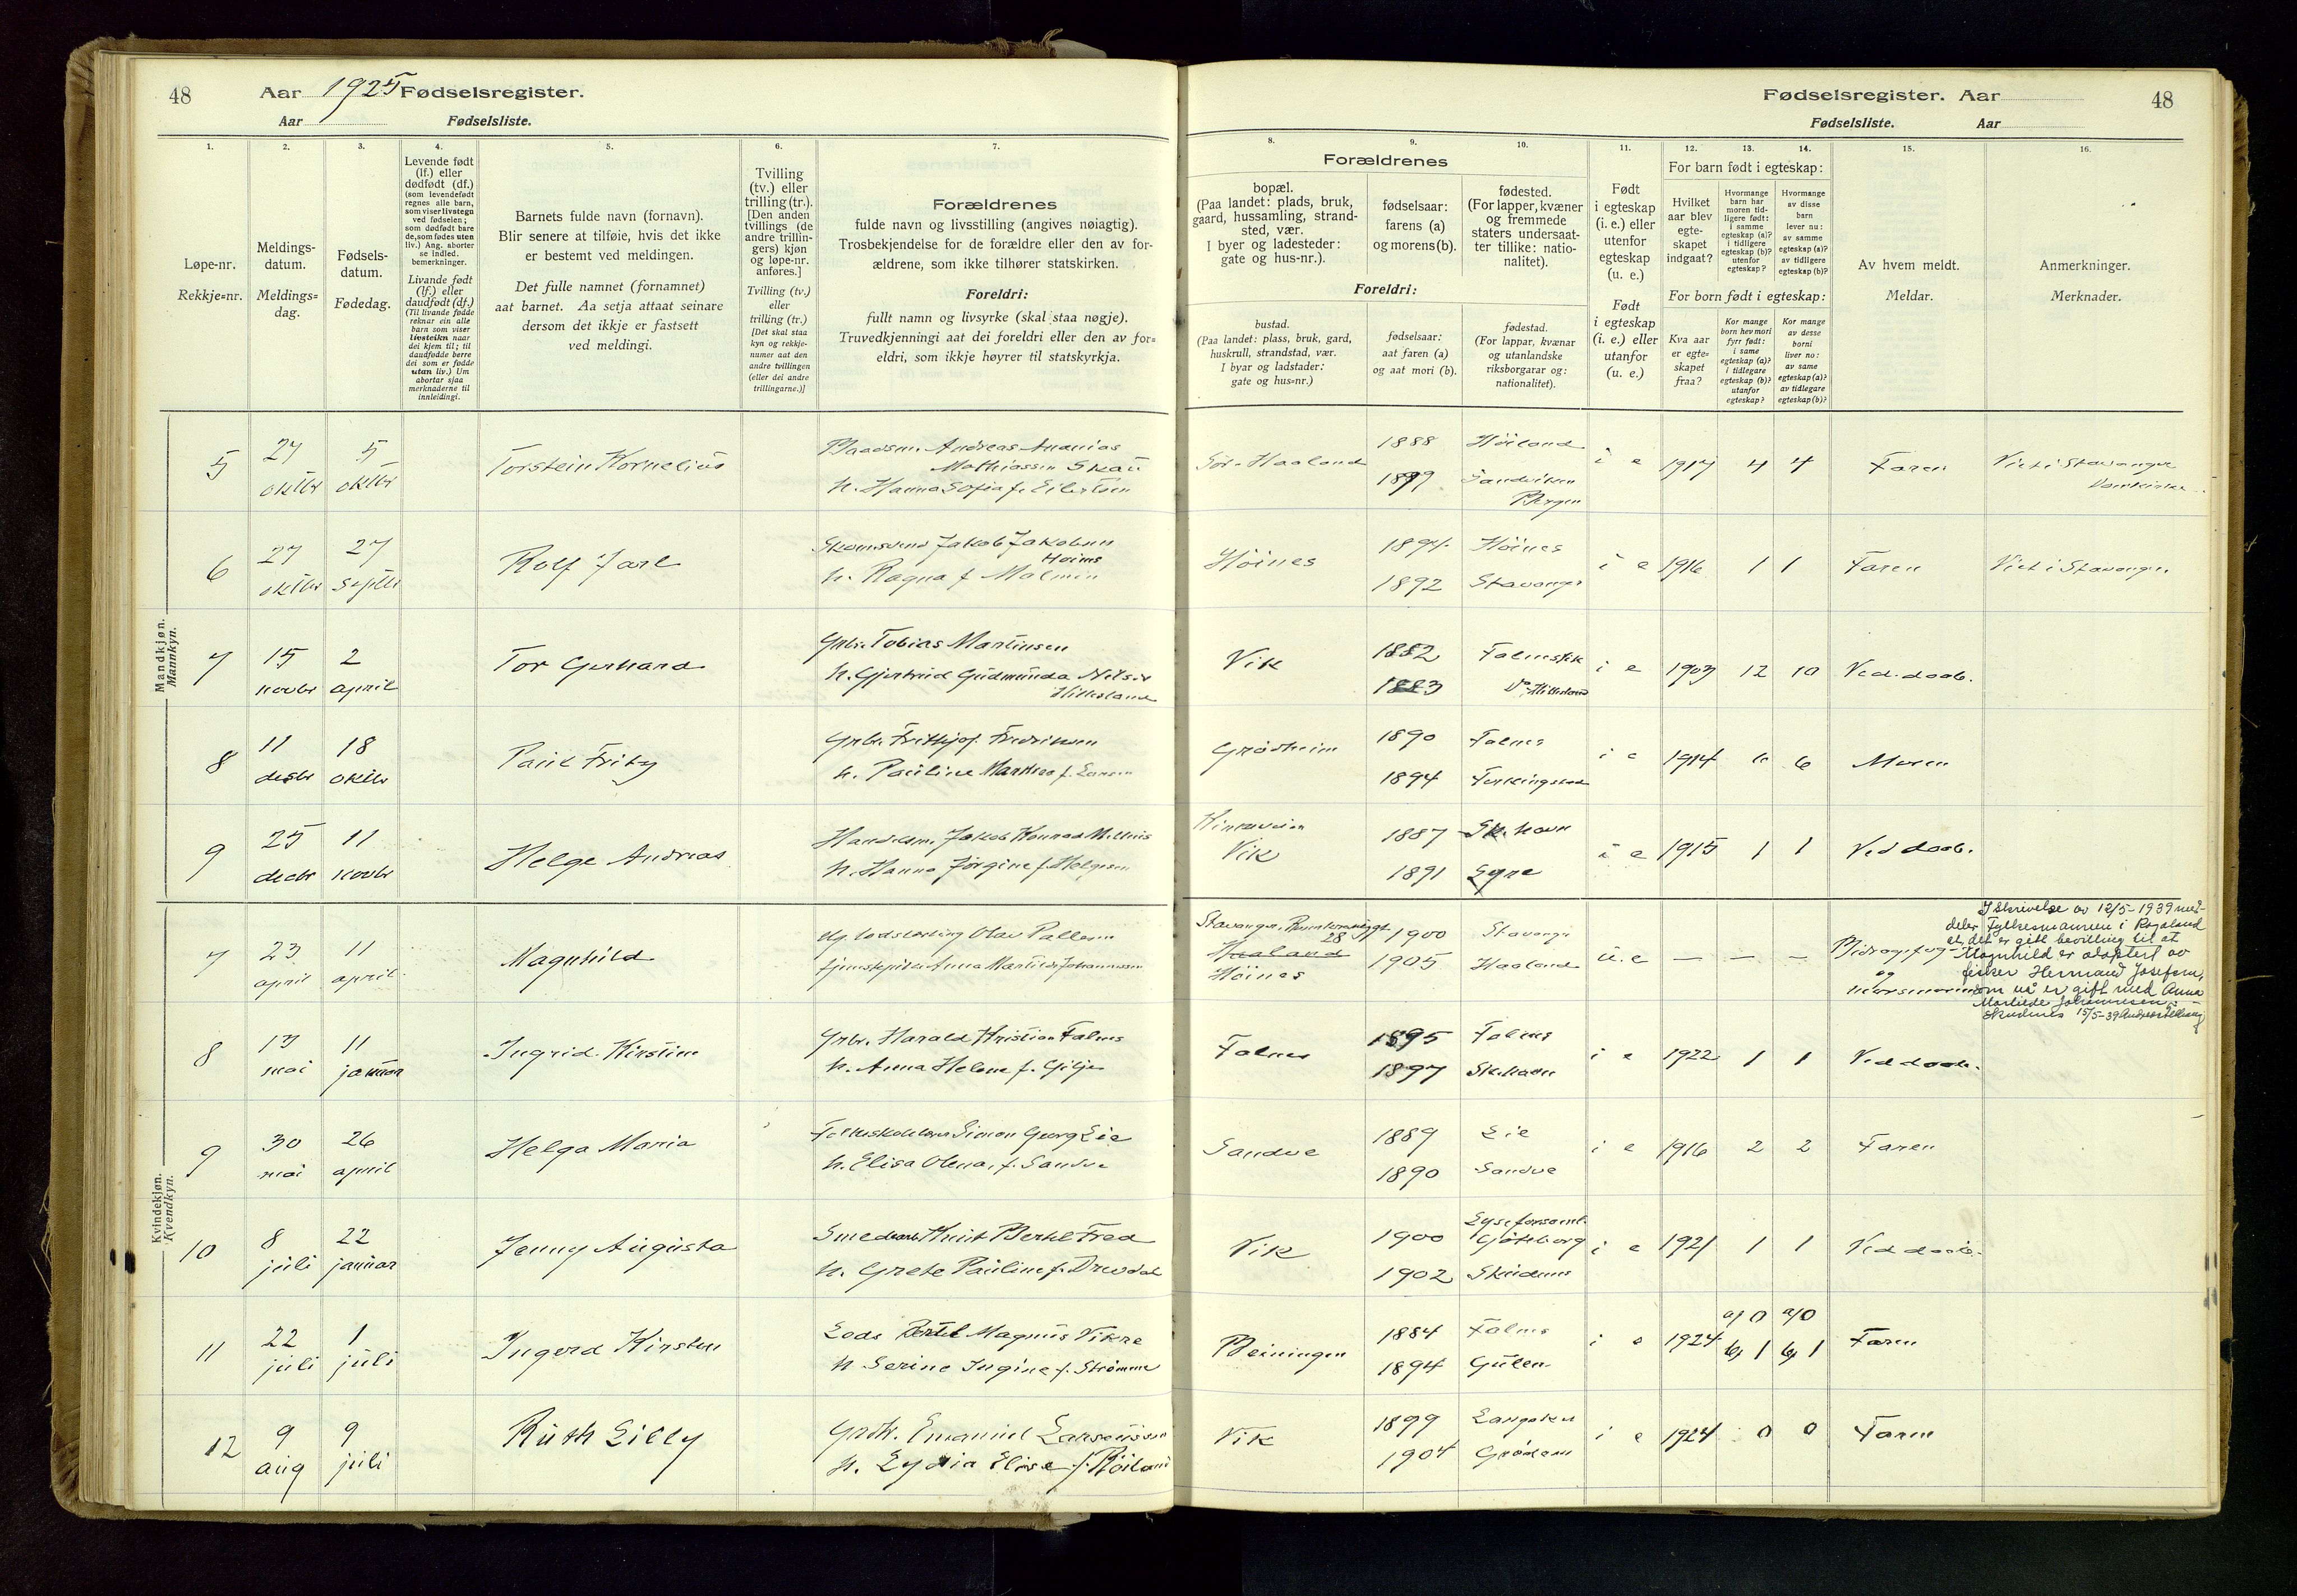 48 Aar 1925 Fødselsregister.
Aar Fødselsliste.
Fødselsregister. Aar 48
Fødselsliste. Aar
1. 2. 3. 4. 5. 6. 7. 8. 9. 10. 11. 12. 13. 14. 15. 16.
Løpe-nr.
Rekkje=nr.
Meldings-
datum.
Meldings=
dag.
Fødsels-
datum.
Fødedag.
Levende født
(lf.) eller
dødfødt (df.)
(som levendefødt
regnes alle barn,
som viser livstegn
ved fødselen;
som dødfødt bare
de, som fødes uten
liv.) Ang. aborter
se indled.
bemerkninger.
Livande født
(lf.) eller
daudfødt (df.)
(Til livande fødde
reknar ein alle
barn som viser
livsteikn naar
dei kjem til; til
daudfødde berre
dei som er fødde
utan liv.) Um
abortar sjaa
merknaderne til
innleidingi.
Barnets fulde navn (fornavn).
Blir senere at tilføie, hvis det ikke
er bestemt ved meldingen.
Det fulle namnet (fornamnet)
aat barnet. Aa setja attaat seinare
dersom det ikkje er fastsett
ved meldingi.
Tvilling
(tv.) eller
trilling (tr.).
[Den anden
tvillings (de
andre trillin-
gers) kjøn
og løpe-nr.
anføres.]
Tvilling (tv.)
eller
trilling (tr.)
[Det skal staa
kyn og rekkje-
numer aat den
andre tvillingen
(eller dei andre
trillingarne.)]
Forældrenes
fulde navn og livsstilling (angives nøiagtig).
Trosbekjendelse for de forældre eller den av for-
ældrene, som ikke tilhører statskirken.
Foreldri:
fullt namn og livsyrke (skal staa nøgje).
Truvedkjenningi aat dei foreldri eller den av for=
eldri, som ikkje høyrer til statskyrkja.
Forældrenes
bopæl.
(Paa landet: plads, bruk,
gaard, hussamling, strand-
sted, vær.
I byer og ladesteder:
gate og hus-nr.).
fødselsaar:
farens (a)
og morens (b).
fødested.
(For lapper, kvæner
og fremmede
staters undersaat-
ter tillike: natio-
nalitet).
Foreldri:
bustad.
(Paa landet: plass, bruk, gard,
huskrull, strandstad, vær.
I byar og ladstader:
gate og hus=nr.)
fødselsaar:
aat faren (a)
og aat mori (b).
fødestad.
(For lappar, kvænar
og utanlandske
riksborgarar og:
nationalitet).
Født
i egteskap
(i. e.) eller
utenfor
egteskap
(u. e.)
Født
i egteskap
(i. e.) eller
utanfor
egteskap
(u. e.)
For barn født i egteskap:
Hvilket
aar blev
egte-
skapet
indgaat?
Hvormange
barn har
moren tid-
ligere født:
i samme
egteskap (a)?
i tidligere
egteskap (b)?
utenfor
egteskap?
Hvormange
av disse
barn
lever nu:
av samme
egteskap (a)?
av tidligere
egteskap (b)?
For born født i egteskap:
Kva aar
er egte=
skapet
fraa?
Kor mange
born hev mori
fyrr født:
i same
egteskap (a)?
i tidlegare
egteskap (b)?
utanfor
egteskap?
Kor mange
av desse
borni
liver no:
av same
egteskap (a)?
av tidlegare
egteskap (b)?
Av hvem meldt.
Meldar.
Anmerkninger.
Merknader.
Mandkjøn.
Mannkyn.
5 27 oktbr 5 oktbr Torstein Kornelius
Andreas Ananias
Mathiassen Skau
h. Hanna Sofia f. Eilertsen
Sör-Haaland 1888 Höiland i e 1917 4 4 Faren Viet i Stavanger
Sandviken
Bergen
Domkirke
6 27 oktbr 27 septbr Rolf Jarl
Jakob Jakobsen
Höines
h. Ragna f. Malmin
Höines 1894 Höines i e 1916 1 1 Faren Viet i Stavanger
1892 Stavanger
7 15 novbr 2 april Tor Gerhard
Grbr. Tobias Martinsen
h. Gjertrud Gudmunda Nilsd.
Hillesland
Vik 1882 Falnes i e 1903 12 10 Ved. daab.
1883 Hillesland
8 11 decbr 18 oktbr Paul Fritz
Grbr. Frithjof Fredriksen
h. Pauline f. Larsen
Grödheim 1890 Falnes i e 1914 6 6 Moren
1894 Ferkingstad
9 25 decbr 11 novbr Helge Andreas
Handelsm. Jakob Konrad
h. Hanna Jörgine f. Helgesen
Vik 1887 Sk.havn i e 1915 1 1 Ved daab.
1891
Kvindekjøn.
Kvendkyn.
7 23 april 11 april Magnhild
Olav Pallesen
Anna Martilde Johannessen
Stavanger, 28
Haaland
Höines
1900 Stavanger u. e — — —
1905 Haaland
Bidragsfog.
og
I skrivelse av 12/5-1939 med-
deler Fylkesmannen i Rogaland
at det er gitt bevilling til at
Magnhild er adoptert av
fisker Hermand Josefsen,
som nå er gift med Anna
Martilde Johannesen.
Skudenes 15/5-39
8 13 mai 11 januar Ingrid Kirstine
Grbr. Harald Kristian Falnes
h. Anna Helene f. Gilje
Falnes 1895 Falnes i e 1922 1 1 Ved daab.
1897 Sk.havn
9 30 mai 26 april Helga Maria
Folkeskolelærer Simon Georg Lie
h. Elisa Olena, f. Sandve
Sandve 1889 Lie i e 1916 2 2 Faren
1890 Sandve
10 8 juli 22 januar Jenny Augusta
Knut Bertil Fred
h. Grete Pauline f. Drevdal
Vik 1900 Göteborg i e 1921 1 1 Ved daab.
1902 Skudenes
11 22 juli 1 juli Ingerd Kirsten
Lods Bertel Magnus Vikre
h. Serine Ingine f. Strömme
Beiningen 1884 Falnes i e 1924 a) 0 b) 1 a) 0 b) 1 Faren
1894 Gulen
12 9 aug 9 juli Ruth Lilly
Emanuel
h. Lydia Elise f.
Vik 1899 Langaker i e 1924 0 0 Faren
1904 Grödem